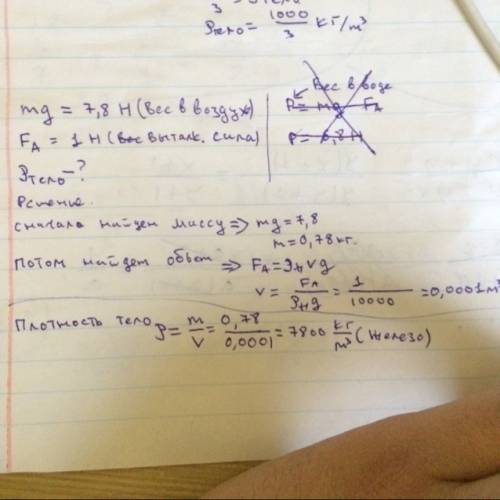 3
ρтело = 1000/3 кг/м³
mg = 7,8 Н (вес в воздух)
F_A = 1 Н (вес выталк. сила)
ρтело - ?
Вес в воде
P = mg - F_A
P = 6,8 Н
Решение.
сначала найдем массу ⇒ mg = 7,8
m = 0,78 кг.
Потом найдем объем ⇒ F_A = ρ_ж v g
v = F_A/ρ_ж g = 1/10000 = 0,0001 м³
Плотность тело ρ = m/v = 0,78/0,0001 = 7800 кг/м³ (железо)